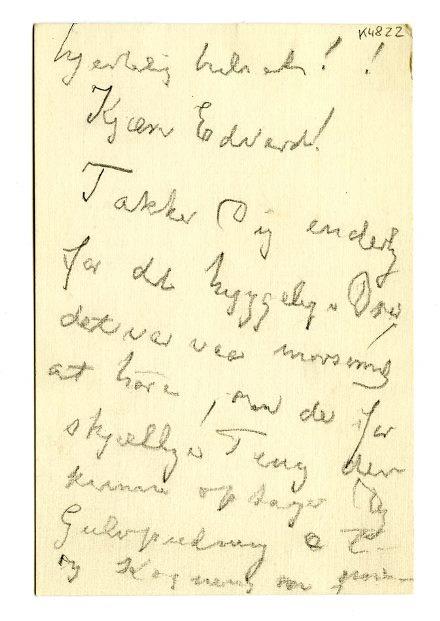 K4822
hjertelig hilsen! !
Kjære Edvard!
Takker Dig enderlig
for det hyggelige Brev
det var saa morsomt
at høre, om de for
skjællige Ting der
kunne optage Dig
Gulvpudsning
og Kogning